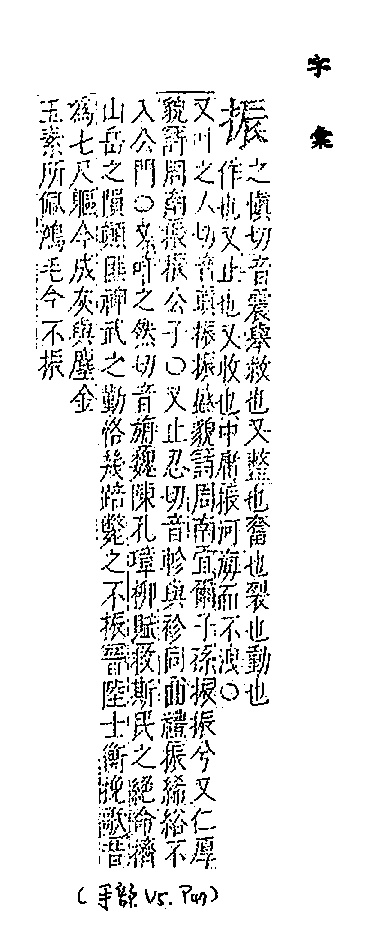 字彙
振
之慎切音震舉救也又整也奮也裂也動也
作也又止也又收也中庸振河海而不洩○
又叶之人切音真振振盛貌詩周南宜爾子孫振振兮又仁厚
貌詩周南振振公子○又止忍切音軫與袗同曲禮振絺綌不
入公門○又叶之然切音旃魏陳孔璋柳賦救斯民之絕命擠
山岳之隕顛匪神武之勤恪幾踣斃之不振晉陸士衡挽歌昔
為七尺軀今成灰與塵金
玉素所佩鴻毛今不振